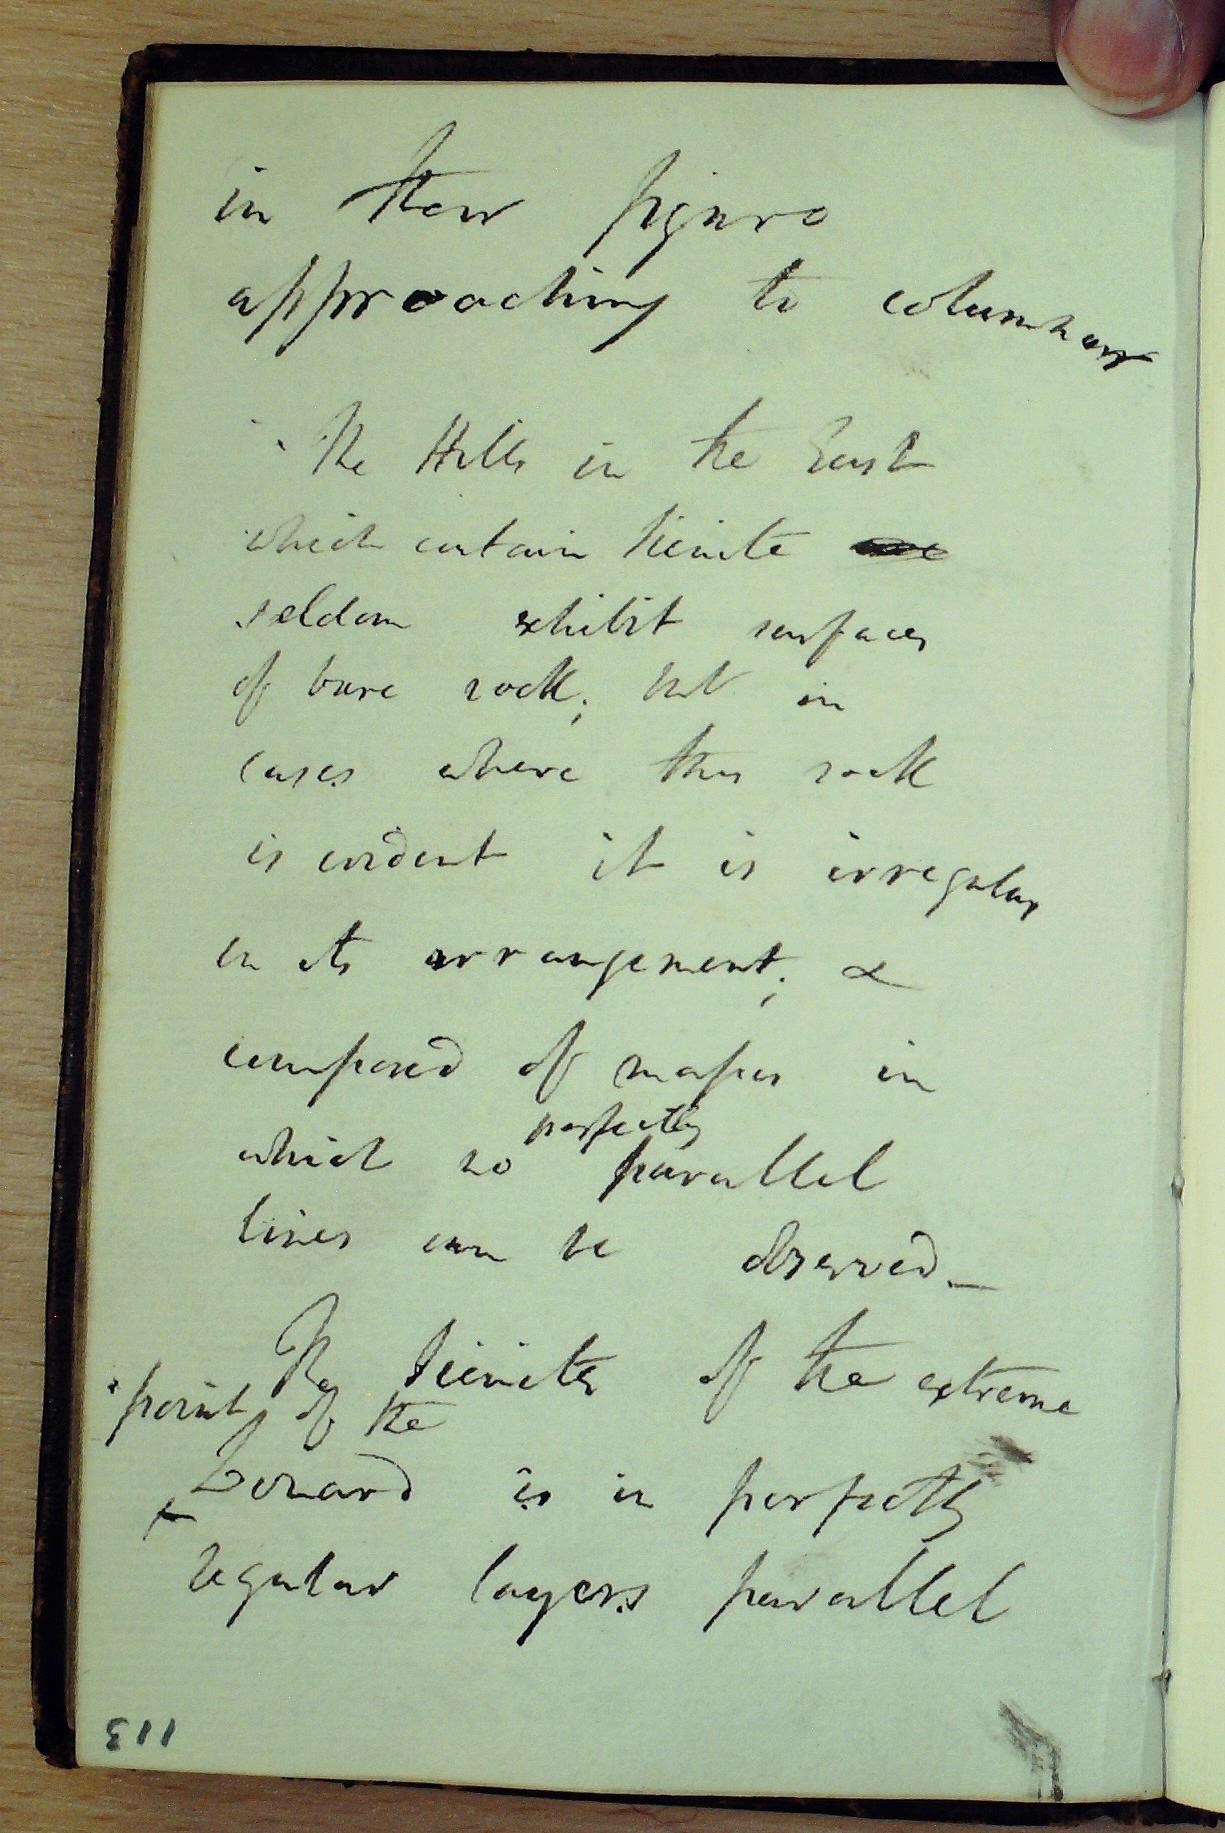 in their figure
approaching to columnar
The Hills in the East
which contain sienite
seldom exhibit surfaces
of bare rock; but in
cases where this rock
is evident it is irregular
in its arrangement; &
composed of masses in
perfectly
which no parallel
lines can be observed_
The sienite of the extreme
point of the
Lizard is in perfectly
regular layers parallel
113